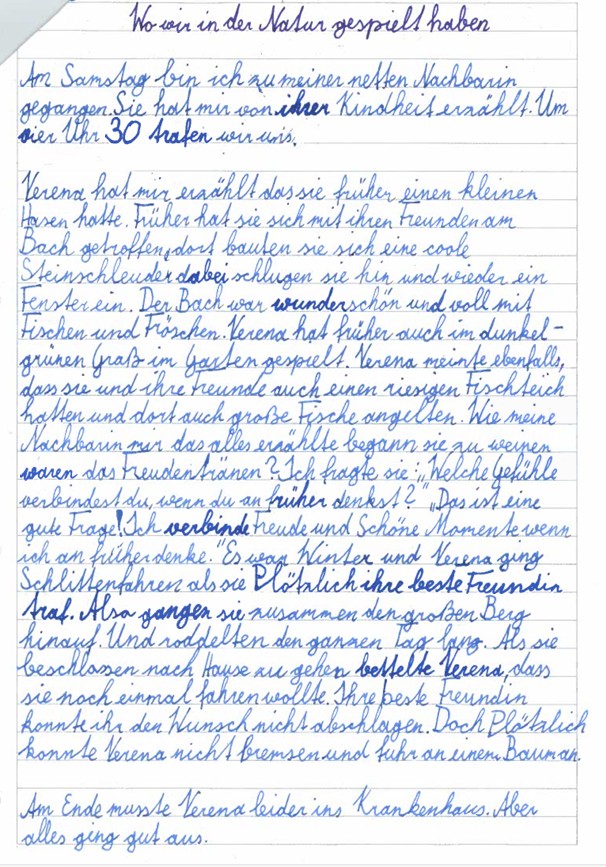 Wo wir in der Natur gespielt haben
Am Samstag bin ich zu meiner netten Nachbarin
gegangen. Sie hat mir von ihrer Kindheit erzählt. Um
vier Uhr 30 trafen wir uns.
Verena hat mir erzählt das sie früher einen kleinen
Hasen hatte. Früher hat sie sich mit ihren Freunden am
Bach getroffen, dort bauten sie sich eine coole
Steinschleuder dabei schlugen sie hin und wieder ein
Fenster ein. Der Bach war wunderschön und voll mit
Fischen und Fröschen. Verena hat früher auch im dunkel-
grünen Graß im Garten gespielt. Verena meinte ebenfalls,
dass sie und ihre Freunde auch einen riesigen Fischteich
hatten und dort auch große Fische angelten. Wie meine
Nachbarin mir das alles erzählte begann sie zu weinen
waren das Freudentränen? Ich fragte sie: „Welche Gefühle
verbindest du, wenn du an früher denkst?" „Das ist eine
gute Frage! Ich verbinde Freude und Schöne Momente wenn
ich an früher denke." Es war Winter und Verena ging
Schlittenfahren als sie Plötzlich ihre beste Freundin
traf. Also gangen sie zusammen den großen Berg
hinauf. Und roddelten den ganzen Tag lang. Als sie
beschlossen nach Hause zu gehen bettelte Verena, dass
sie noch einmal fahren wollte. Ihre beste Freundin
konnte ihr den Wunsch nicht abschlagen. Doch Plötzlich
konnte Verena nicht bremsen und fuhr an einem Baum an.
Am Ende musste Verena leider ins Krankenhaus. Aber
alles ging gut aus.